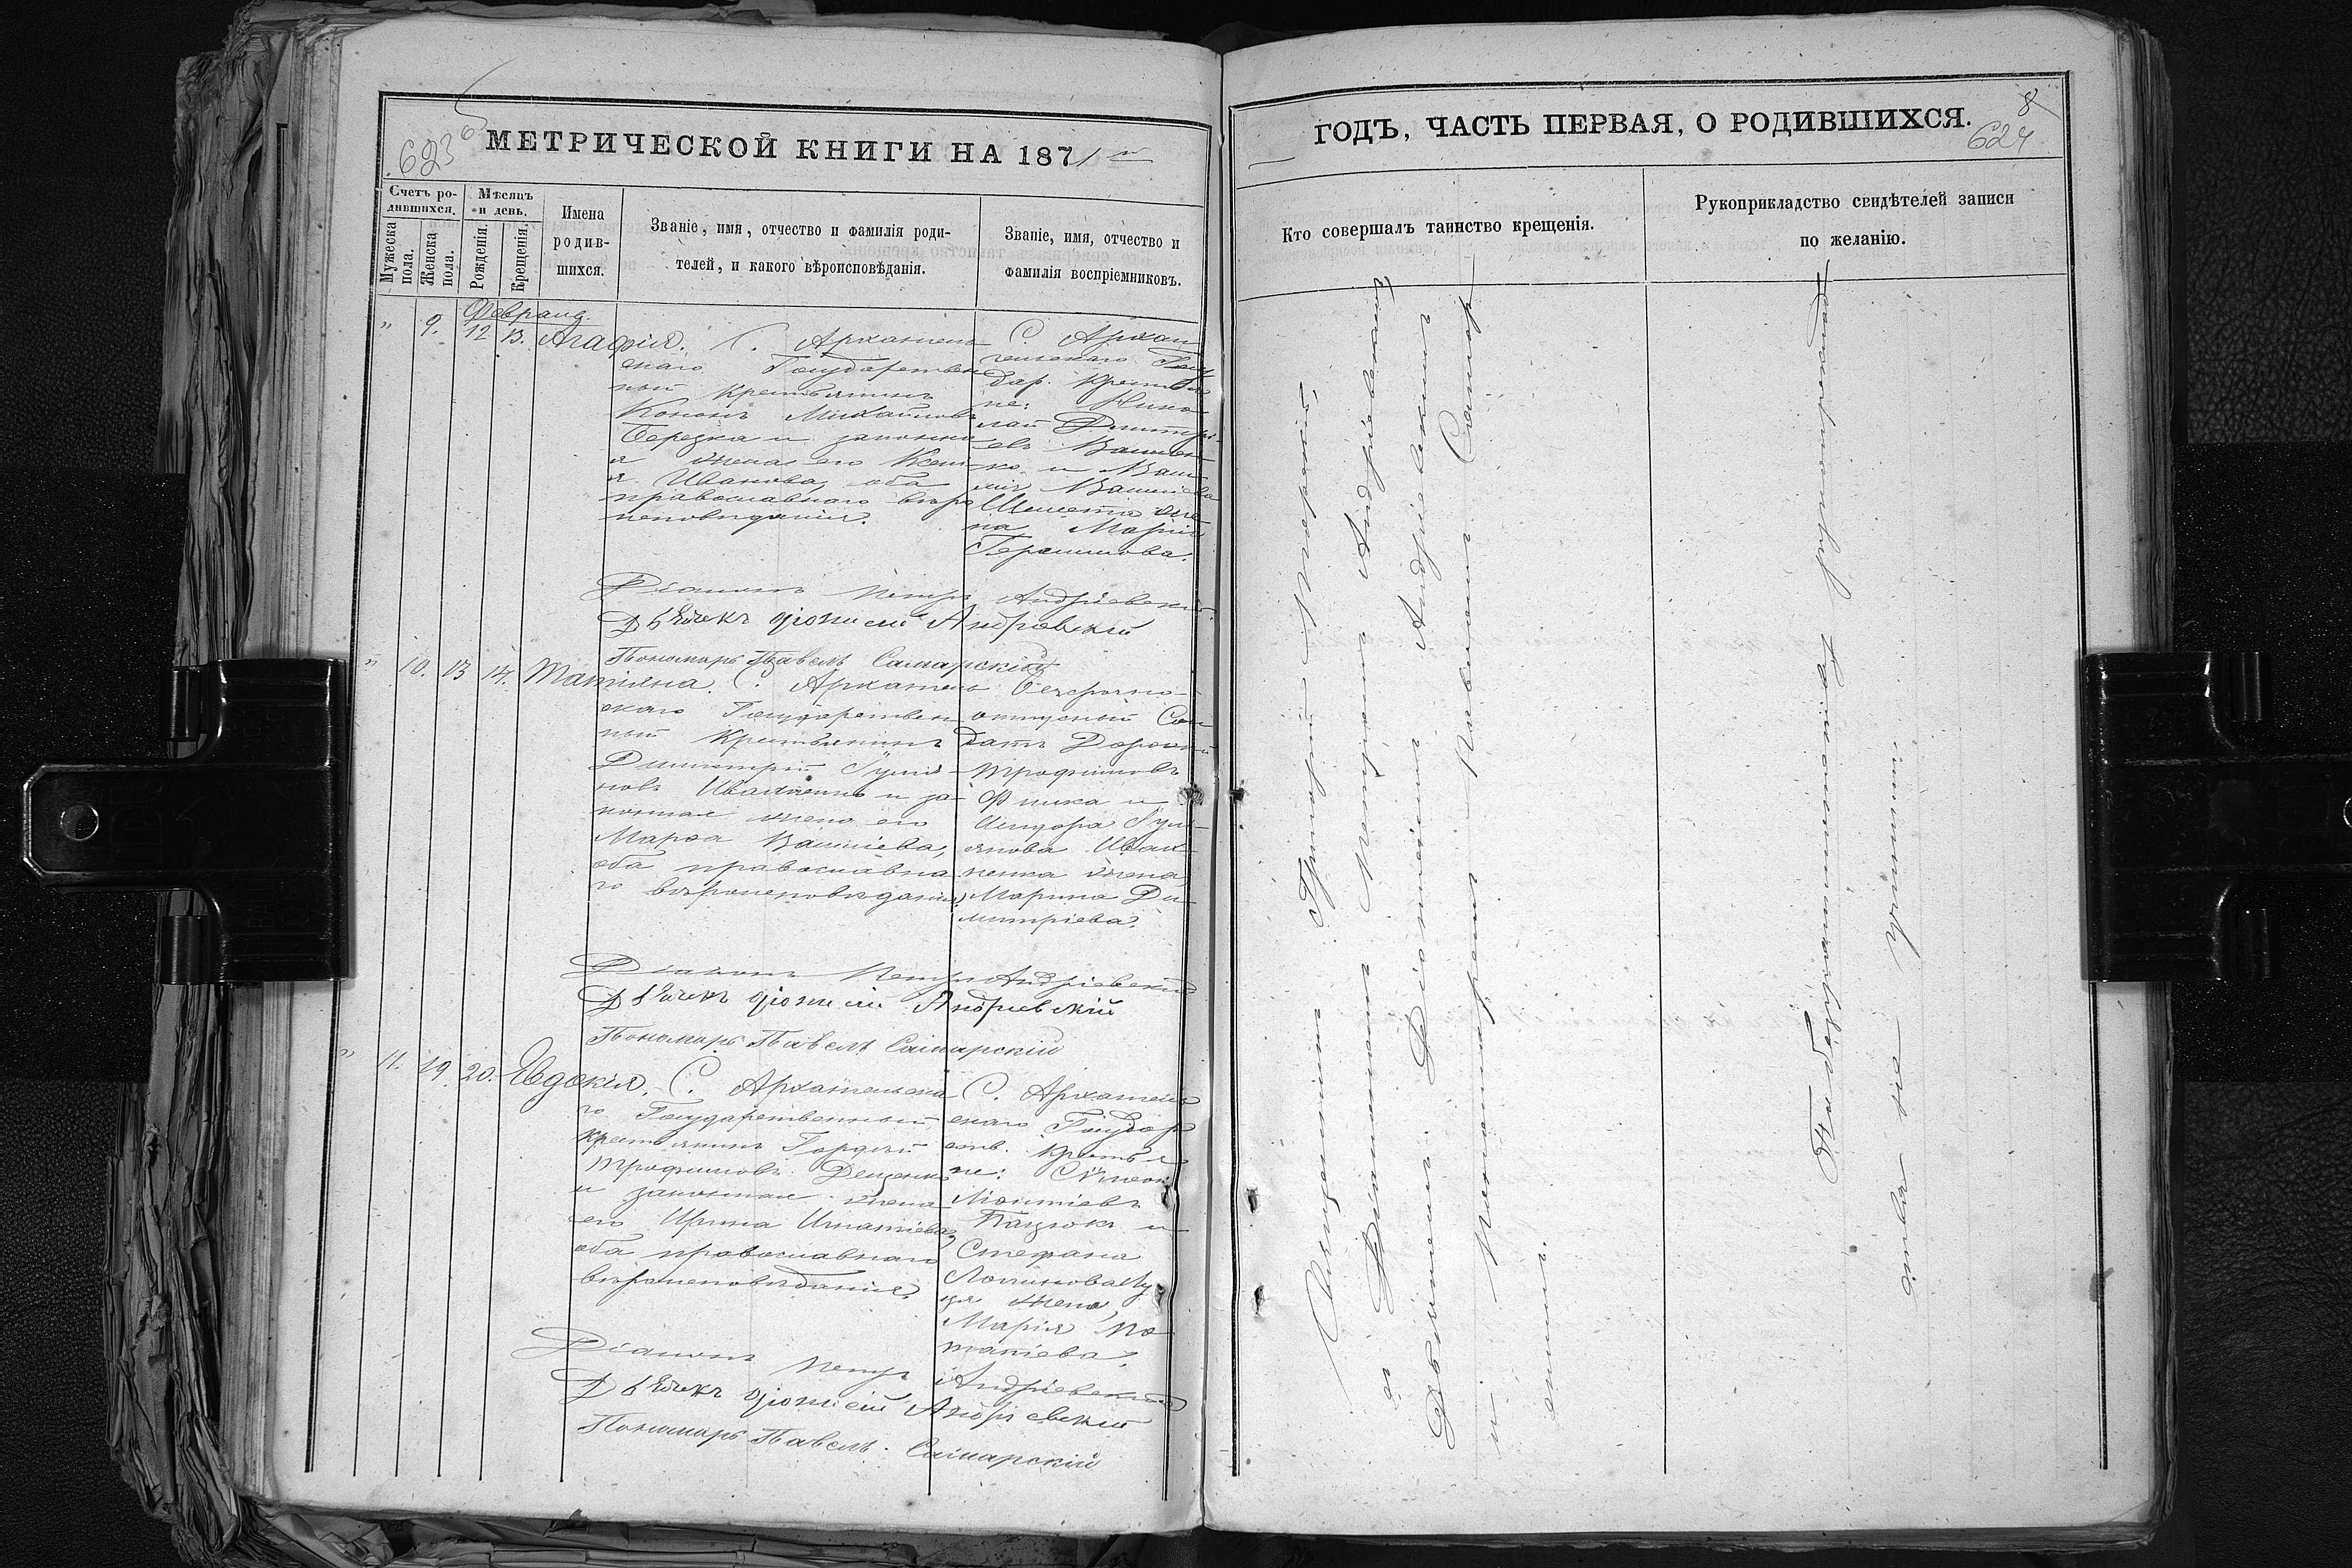 623
МЕТРИЧЕСКОЙ КНИГИ НА 1871 й
Счетъ ро-
дившихся.
Мужеска
пола.
Женска
пола.
Мѣсяцъ
и день.
Рожденія.
Крещенія.
Имена
родив-
шихся.
Званіе, имя, отчество и фамилія роди-
телей, и какого вѣроисповѣданія.
Званіе, имя, отчество и
фамилія воспріемниковъ.
Февраля.
" 9. 12 13. Агафія.
С. Архангель
скаго Государствен
ный Крестьянинъ
Кононъ Михайловъ
Березка и законна
я жена его Ксені
я Иванова, оба
православнаго вѣро
исповѣданія.
С. Архан
гельскаго Госу
дар. Крестья
не: Нико
лай Дмитрі
евъ
и
жена Марія
Герасимова.
Діаконъ Петръ Андріевскій
Дьячекъ Діонисій Андріевскій
Пономарь Павелъ Самарскій
" 10. 13 14. Татіяна.
С. Архангель
скаго Государствен
ный Крестьянинъ
Димитрій
Ивахненко и за
конная жена его
Марѳа Василіева,
оба православна
го вѣроисповѣданія.
Безсрочно-
отпускный Сол
датъ Дорофей
Трофимовъ
и
Исидора
Ивах
ненка жена,
Марина Ди
митріева.
Діаконъ Петръ Андріевскій
Дьячекъ Діонисій Андріевскій
Пономарь Павелъ Самарскій
" 11. 19. 20. Евдокія.
С. Архангельска
го Государственный
Крестьянинъ Гордѣй
Трофимовъ Деценко
и законная жена
его Ирина Игнатіева,
оба православнаго
вѣроисповѣданія.
С. Архангель
скаго Государ
ств. Крестья
не: Сѵмеонъ
Леонтіевъ
Пацюкъ и
Стефана
жена,
Марія По
тапіева.
Діаконъ Петръ Андріевскій
Дьячекъ Діонисій Андріевскій
Пономарь Павелъ Самарскій
ГОДЪ, ЧАСТЬ ПЕРВАЯ, О РОДИВШИХСЯ.
8
624
Кто совершалъ таинство крещенія.
Рукоприкладство свидѣтелей записи
по желанію.
Священникъ Григорій
съ Діакономъ Петромъ Андріевскимъ
Дьячкомъ Діонисіемъ Андріевскимъ
и Пономаремъ Павломъ Самар
скимъ.
рукоприклад
ства не учинили.